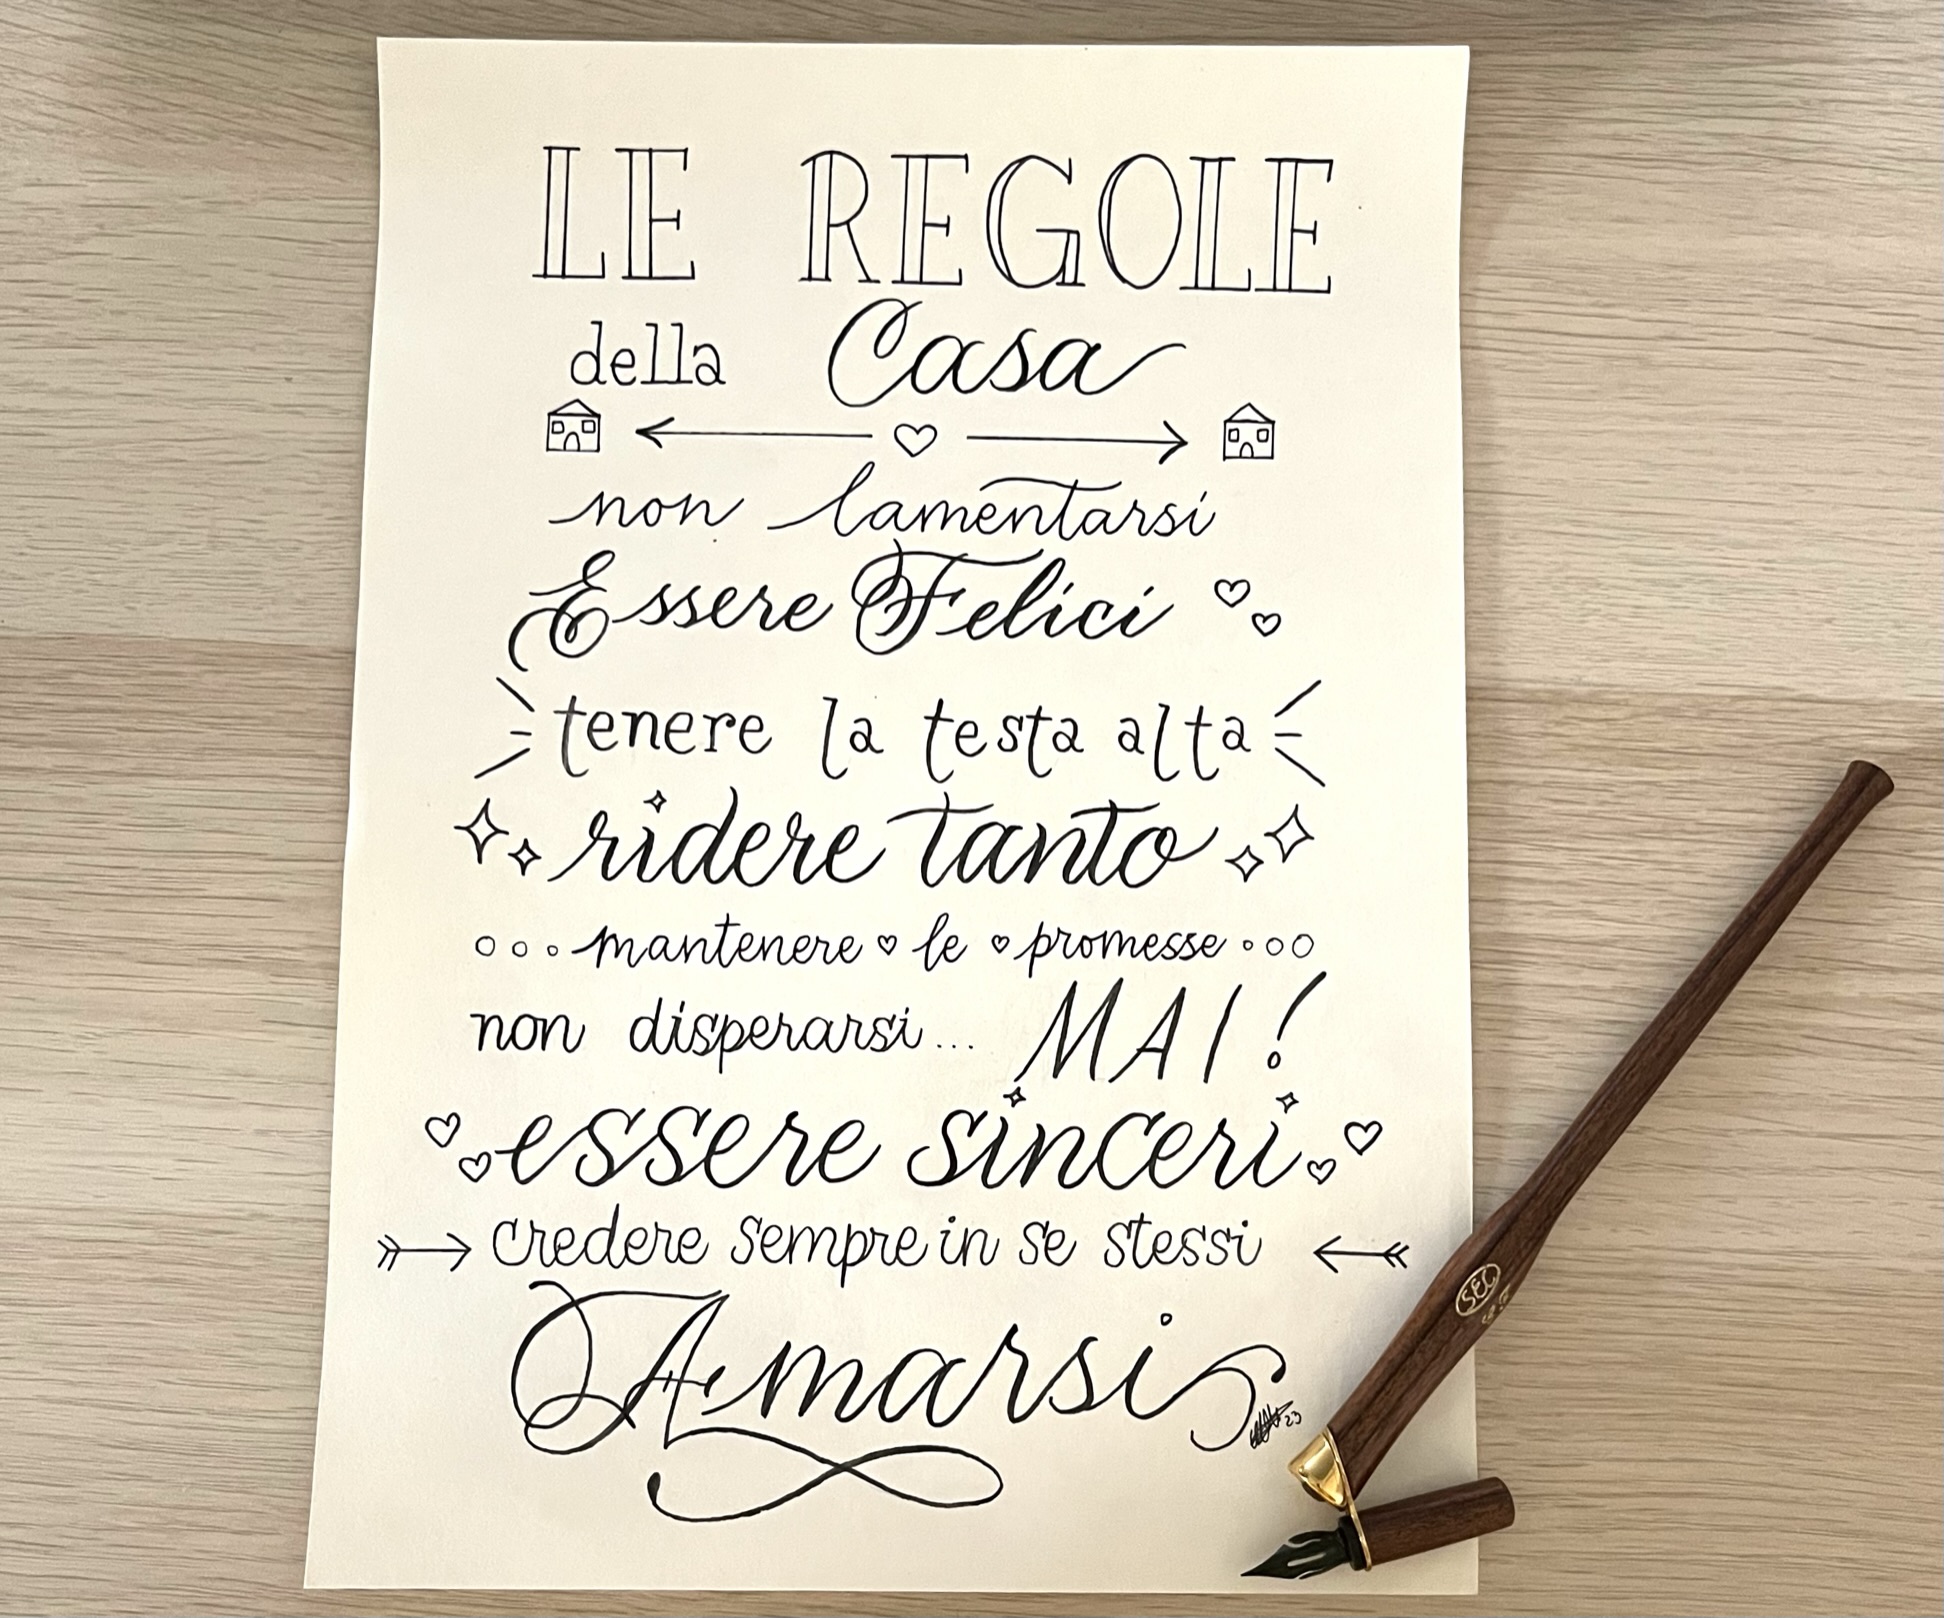 LE REGOLE
della Casa
non lamentarsi
Essere Felici
tenere la testa alta
ridere tanto
mantenere le promesse
non disperarsi... MAI!
essere sinceri
credere sempre in se stessi
Amarsi
23
SEC